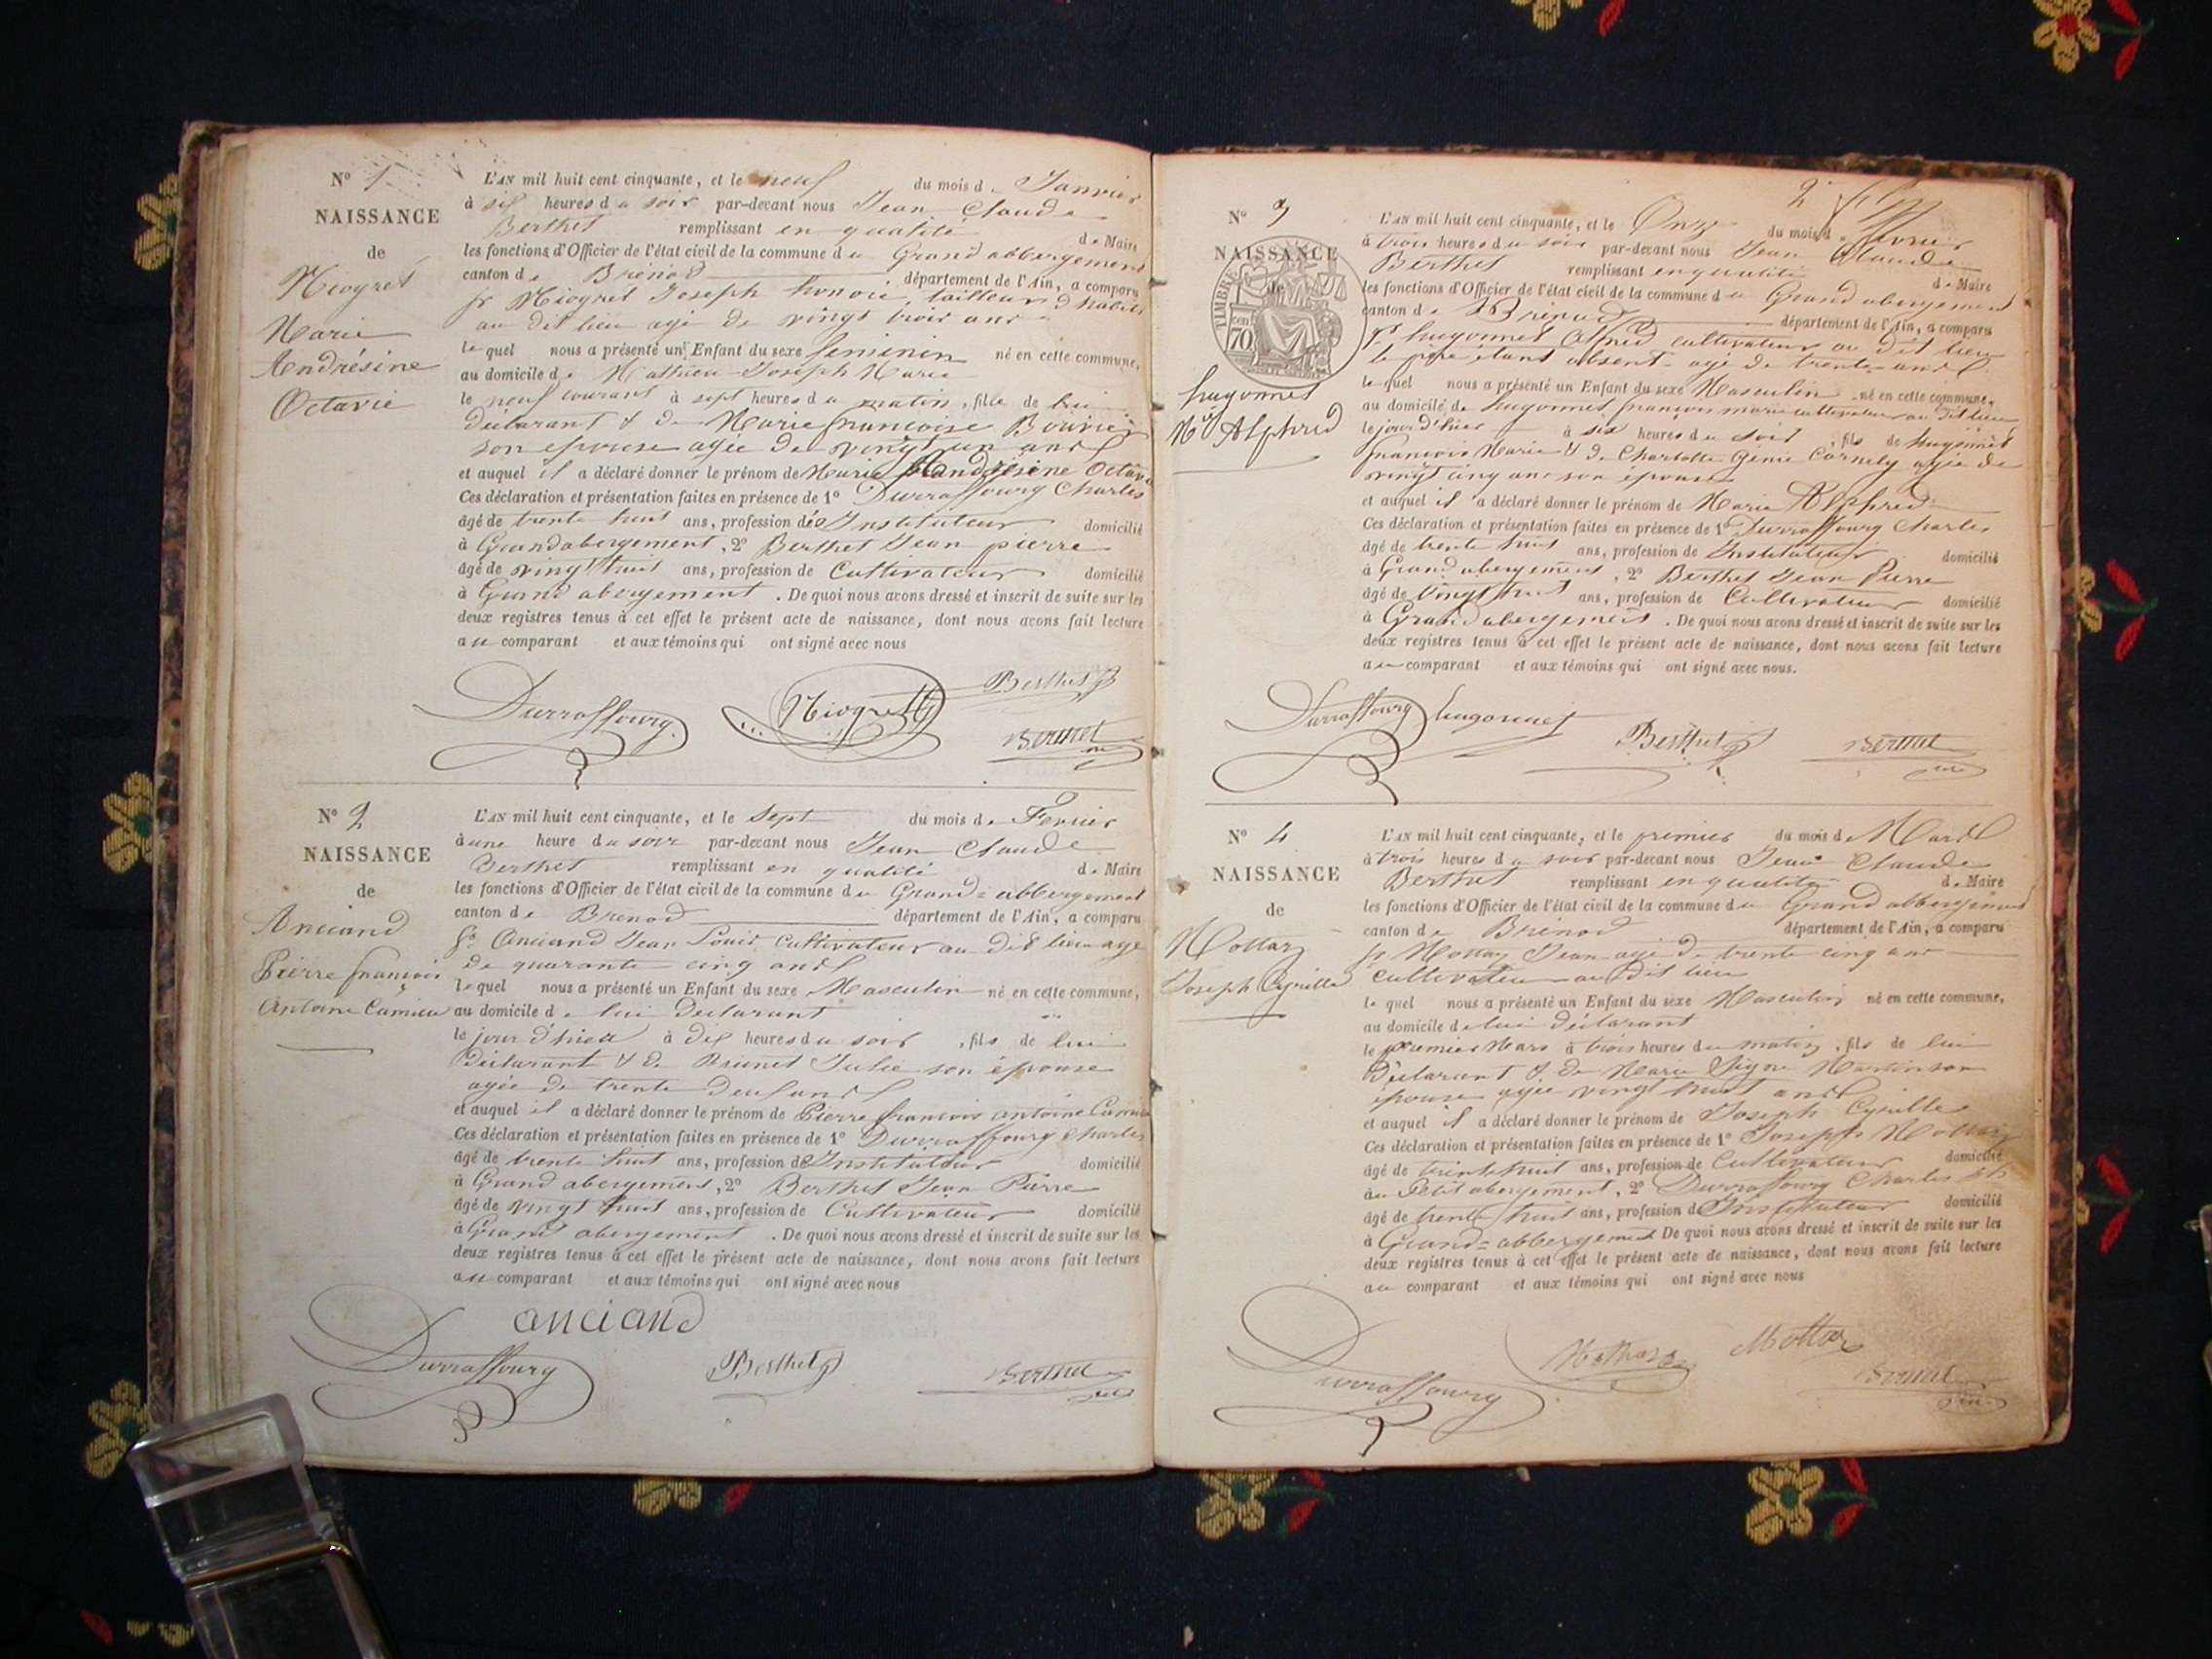 N° 1
NAISSANCE
de
Niogret
Marie
Andrésine
Octavie
L'AN mil huit cent cinquante, et le neuf du mois de Janvier
à six heures du soir par-devant nous Jean Claude
Berthet remplissant en qualité de Maire
les fonctions d'Officier de l'état civil de la commune du Grand abbergement
canton de Brenod département de l'Ain, a comparu
sr Niogret Joseph honoré, tailleur d'habits
au dit lieu agé de vingt trois ans
lequel nous a présenté un Enfant du sexe feminin né en cette commune,
au domicile de Mathieu Joseph Marie
le neuf courant à sept heures du matin, fille de lui
déclarant & de Marie françoise Bouvier
son epouse agée de vingt un ans
et auquel il a déclaré donner le prénom de Marie Andrésine Octavie
Ces déclaration et présentation faites en présence de 1° Durraffourg Charles
âgé de trente huit ans, profession d'Instituteur domicilié
à Grand abergement, 2° Berthet Jean pierre
âgé de vingt huit ans, profession de Cultivateur domicilié
à Grand abergement. De quoi nous avons dressé et inscrit de suite sur les
deux registres tenus à cet effet le présent acte de naissance, dont nous avons fait lecture
au comparant et aux témoins qui ont signé avec nous
Durraffourg Niogret Berthet
Berthet
N° 2
NAISSANCE
de
Anciand
Pierre françois
Antoine Camille
L'AN mil huit cent cinquante, et le Sept du mois de Fevrier
à une heure du soir par-devant nous Jean Claude
Berthet remplissant en qualité de Maire
les fonctions d'Officier de l'état civil de la commune du Grand=abbergement
canton de Brenod département de l'Ain, a comparu
sr Anciand Jean Louis Cultivateur au dit lieu age
de quarante cinq ans
lequel nous a présenté un Enfant du sexe Masculin né en cette commune,
au domicile de lui Declarant
le jour d'hier à dix heures du soir, fils de lui
Déclarant & de Brunet Julie son épouse
agée de trente deux ans
et auquel il a déclaré donner le prénom de Pierre françois antoine Camille
Ces déclaration et présentation faites en présence de 1° Durraffourg Charles
âgé de trente huit ans, profession d'Instituteur domicilié
à Grand abergement, 2° Berthet Jean Pierre
âgé de vingt huit ans, profession de Cultivateur domicilié
à Grand abergement. De quoi nous avons dressé et inscrit de suite sur les
deux registres tenus à cet effet le présent acte de naissance, dont nous avons fait lecture
au comparant et aux témoins qui ont signé avec nous
anciand
Durraffourg Berthet Berthet
2
N° 3
NAISSANCE
de
TIMBRE
70
hugonnet
Mie Alphred
L'AN mil huit cent cinquante, et le Onze du mois de fevrier
à trois heures du soir par-devant nous Jean Claude
Berthet remplissant en qualité de Maire
les fonctions d'Officier de l'état civil de la commune du Grand abergement
canton de Brenod département de l'Ain, a comparu
sr hugonnet Alfred cultivateur au dit lieu
le père étant absent agé de trente ans
lequel nous a présenté un Enfant du sexe Masculin né en cette commune,
au domicile de hugonnet françois marie cultivateur au dit lieu
le jour d'hier à six heures du soir, fils de hugonnet
françois Marie & de Charlotte Génie Cornely agée de
vingt cinq ans son épouse
et auquel il a déclaré donner le prénom de Marie Alphred
Ces déclaration et présentation faites en présence de 1° Durraffourg Charles
âgé de trente huit ans, profession de Instituteur domicilié
à Grand abergement, 2° Berthet Jean Pierre
âgé de vingt huit ans, profession de Cultivateur domicilié
à Grand abergement. De quoi nous avons dressé et inscrit de suite sur les
deux registres tenus à cet effet le présent acte de naissance, dont nous avons fait lecture
au comparant et aux témoins qui ont signé avec nous.
Durraffourg hugonnet Berthet Berthet
N° 4
NAISSANCE
de
Mottaz
Joseph Cyrille
L'AN mil huit cent cinquante, et le premier du mois de Mars
à trois heures du soir par-devant nous Jean Claude
Berthet remplissant en qualité de Maire
les fonctions d'Officier de l'état civil de la commune du Grand abbergement
canton de Brénod département de l'Ain, a comparu
sr Mottaz Jean agé de trente cinq ans
cultivateur au dit lieu
lequel nous a présenté un Enfant du sexe Masculin né en cette commune,
au domicile de lui déclarant
le premier Mars à trois heures du matin, fils de lui
Déclarant & de Marie Martin son
épouse agée vingt huit ans
et auquel il a déclaré donner le prénom de Joseph Cyrille
Ces déclaration et présentation faites en présence de 1° Joseph Mottaz
âgé de trente huit ans, profession de Cultivateur domicilié
au Petit abergement, 2° Durraffourg Charles
âgé de trente huit ans, profession d'Instituteur domicilié
à Grand=abbergement De quoi nous avons dressé et inscrit de suite sur les
deux registres tenus à cet effet le présent acte de naissance, dont nous avons fait lecture
au comparant et aux témoins qui ont signé avec nous
Durraffourg Mottaz Mottaz
Berthet